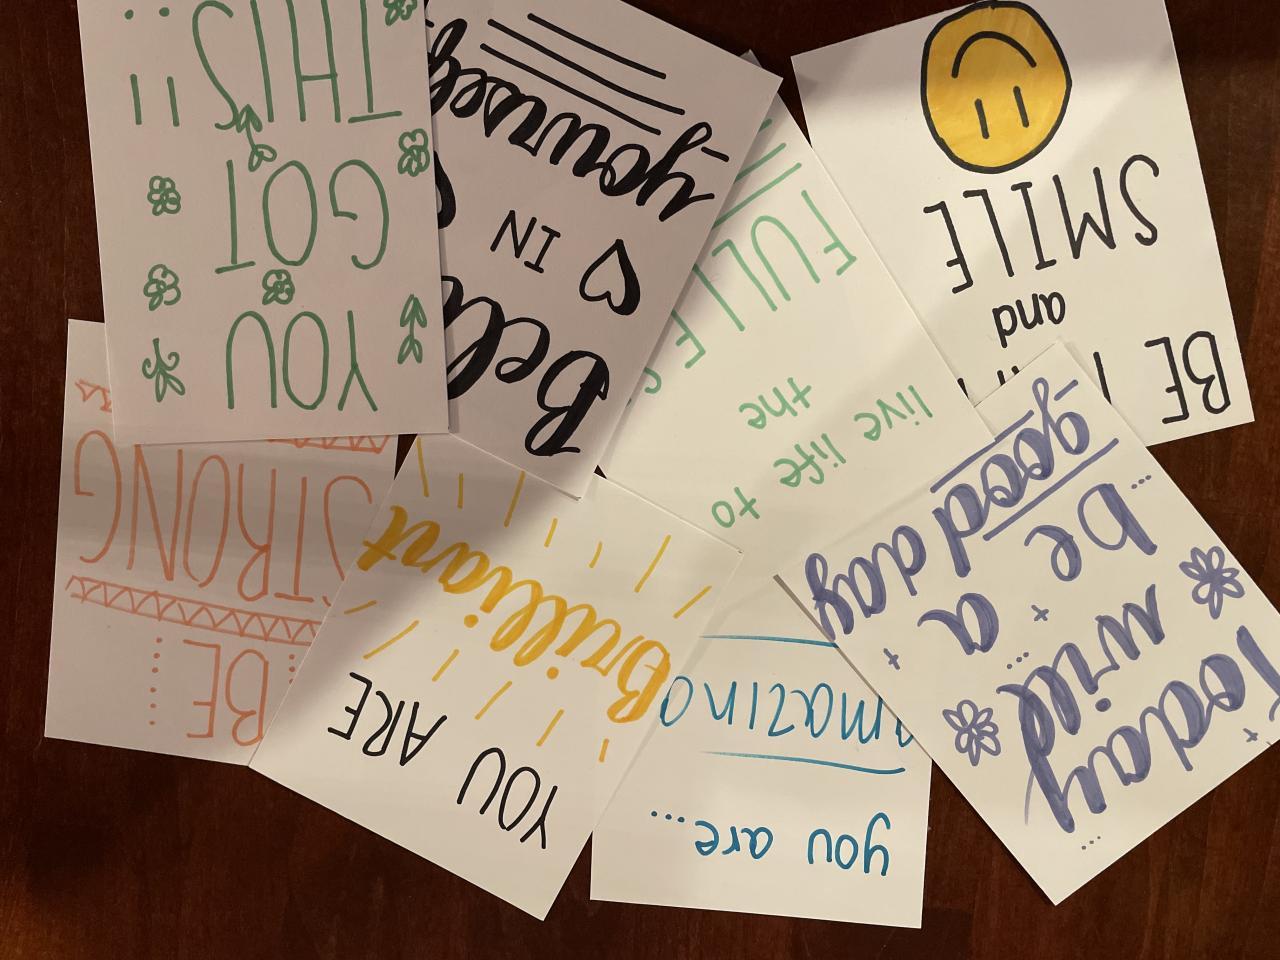 YOU
GOT
THIS!!
Believe
IN
yourself
live life to
the
FULLEST
BE
and
SMILE
BE
STRONG
YOU ARE
Brilliant
you are...
amazing
Today
will
be a
good day